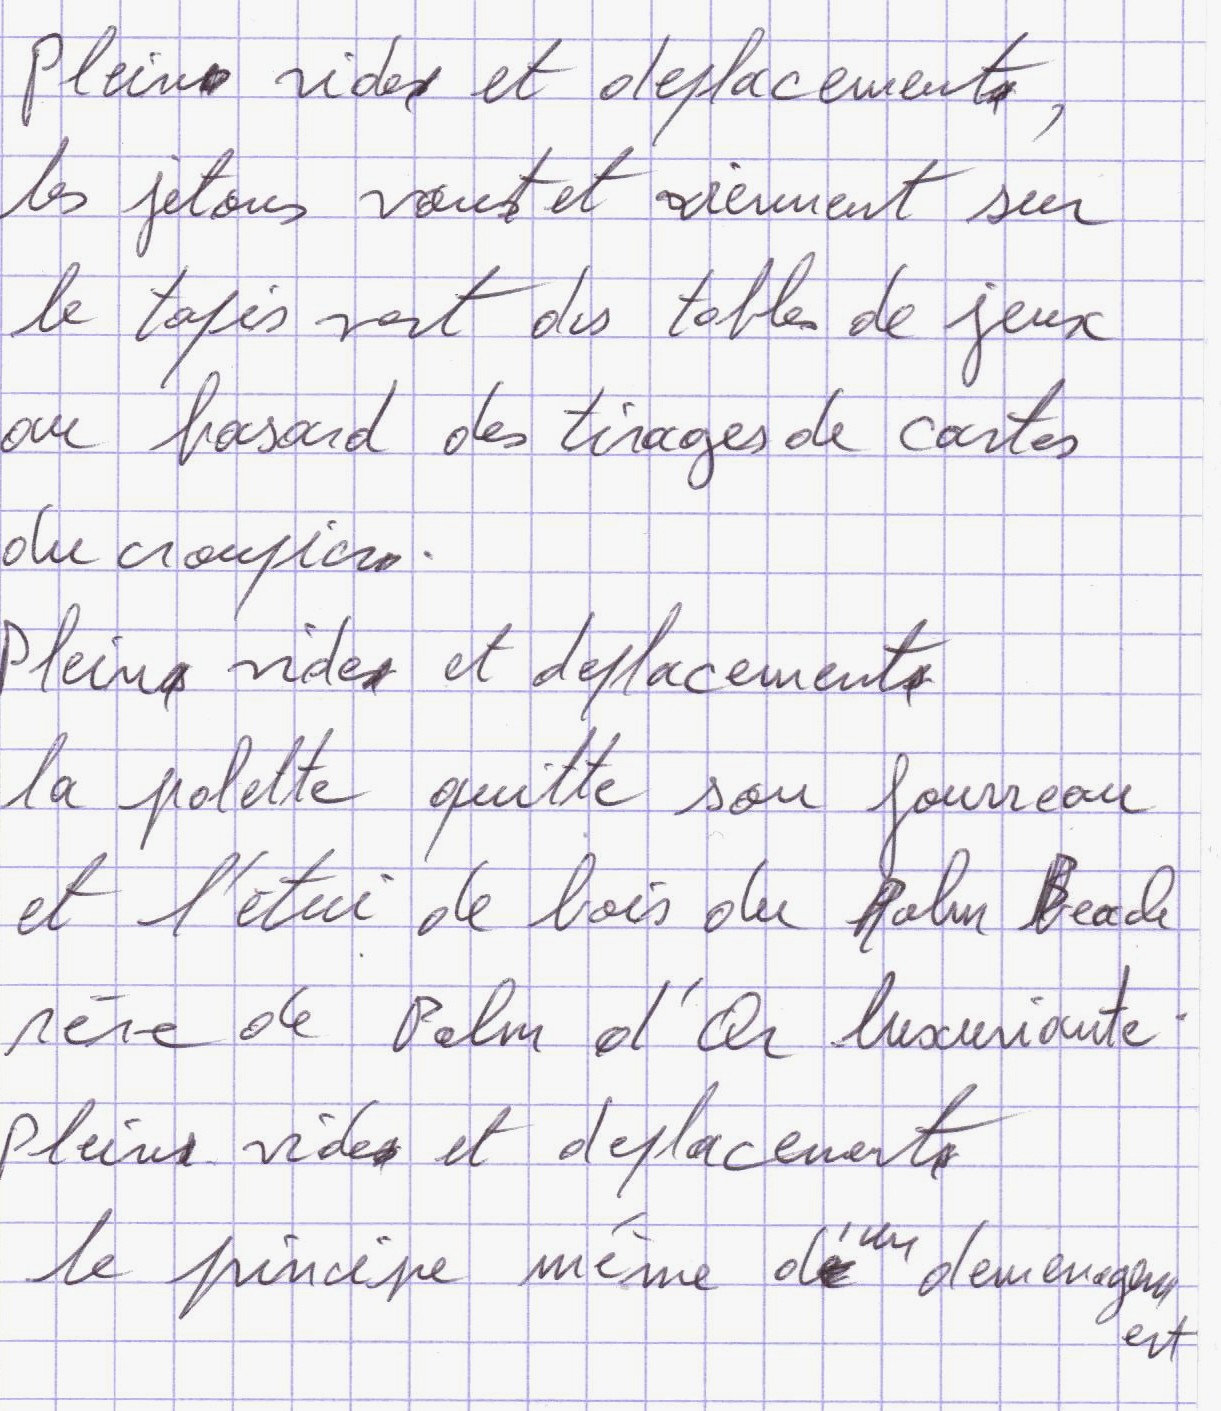 Pleins vides et deplacements,
les jetons vont et viennent sur
le tapis vert des tables de jeux
au hasard des tirages de cartes
du croupier.
Pleins vides et deplacements
la palette quitte son fourreau
et l'étui de bois du Palm Beach
rêve de Palm d'Or luxuriante.
Pleins vides et deplacements
le principe même d'un demenagem
ent